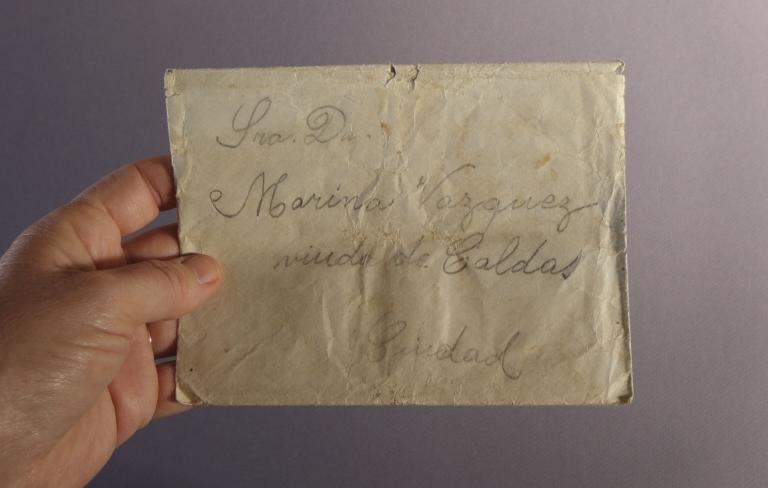 Sra. Da.
Marina Vazquez
viuda de Caldas
Ciudad